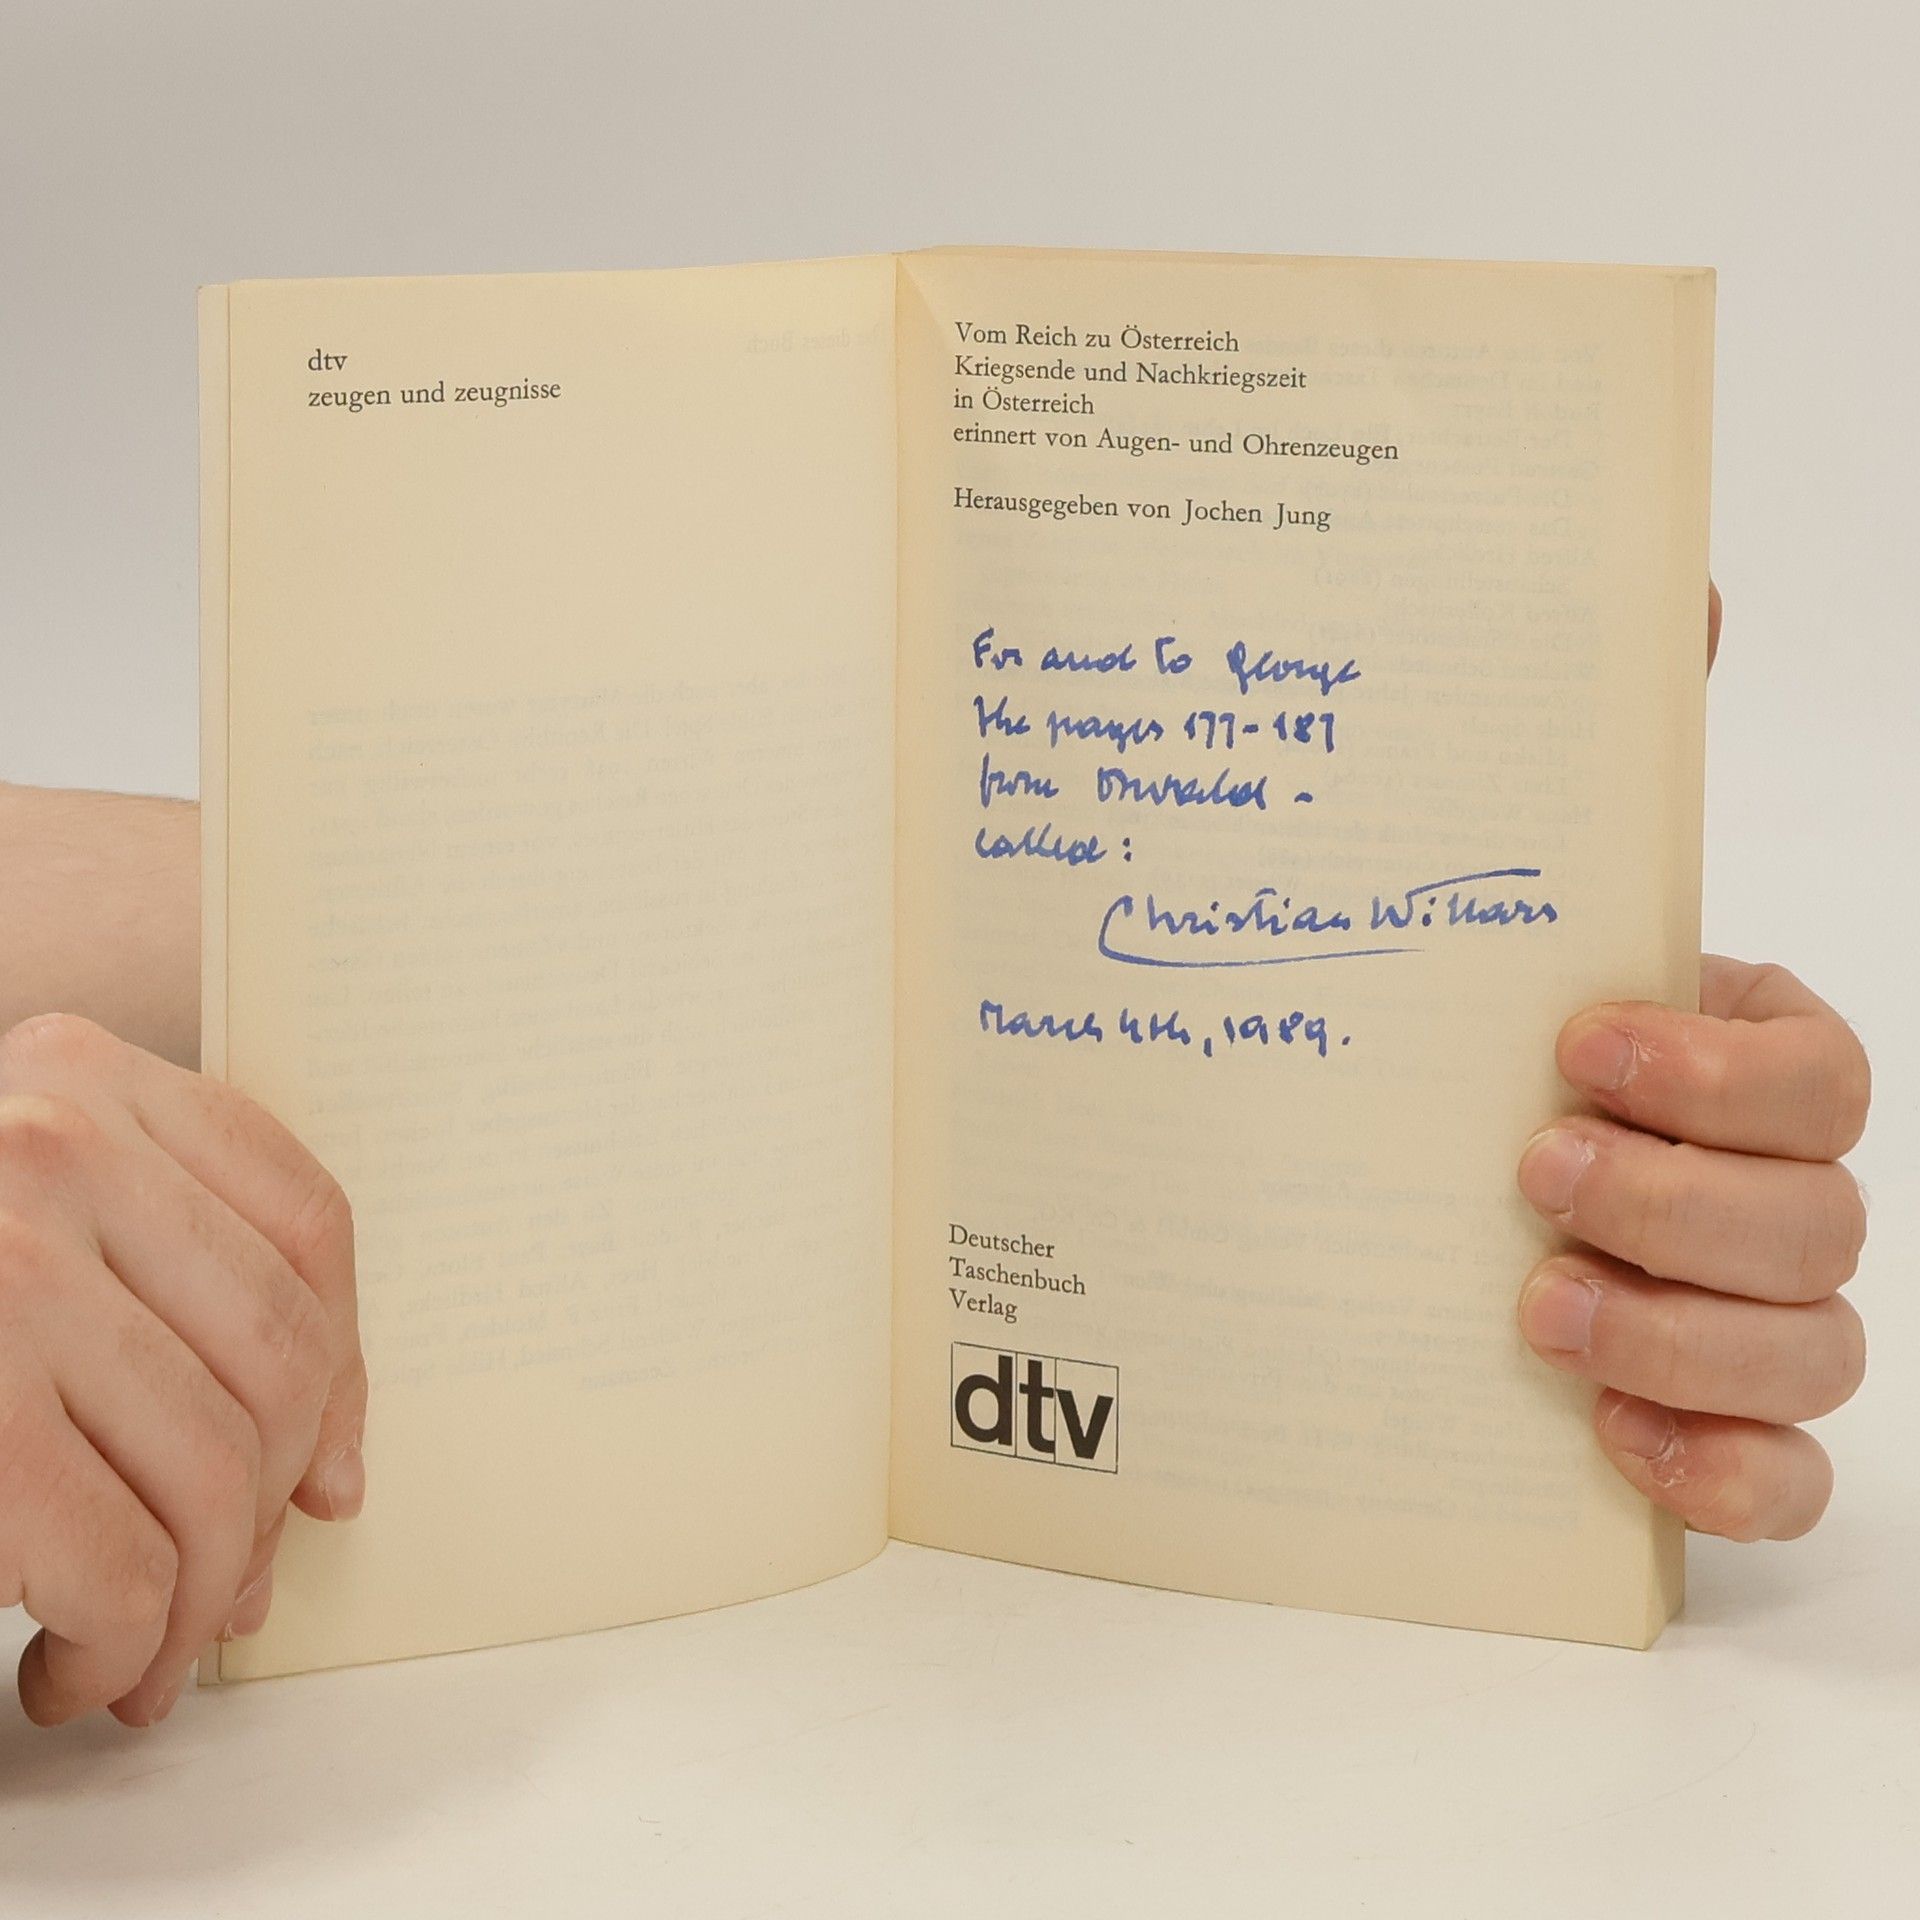 dtv
zeugen und zeugnisse
Vom Reich zu Österreich
Kriegsende und Nachkriegszeit
in Österreich
erinnert von Augen- und Ohrenzeugen
Herausgegeben von Jochen Jung
For and to George
the pages 177-187
from Oswald -
called:
Christian Willars
March 4th, 1989.
Deutscher
Taschenbuch
Verlag
dtv